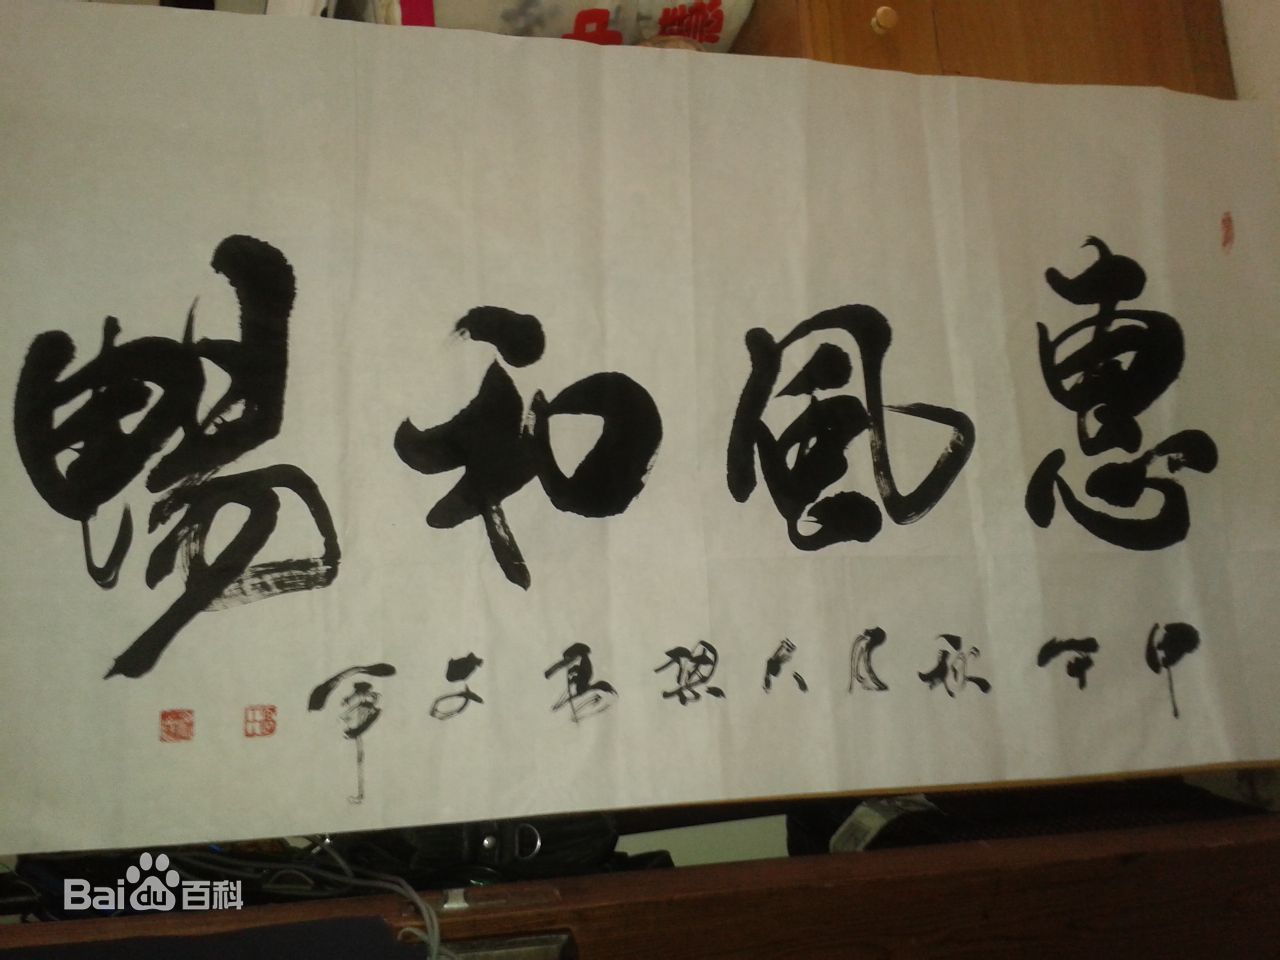 惠風和暢
甲午秋月大梁高文軍
Bai du 百科